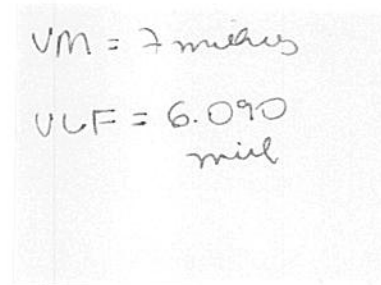 VM = 7 milhões
VLF = 6.090
mil